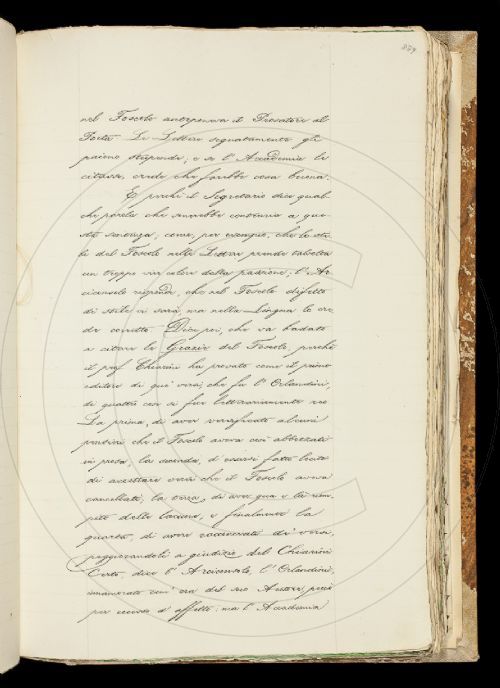 879
nel Foscolo anteponeva il Prosatore al
Poeta. Le Lettere segnatamente gli
paiono stupende; e se l'Accademia le
citasse, crede che farebbe cosa buona.
E perchè il Segretario dice qual
che parola che sarebbe contraria a que
sta sentenza, come, per esempio, che lo sti
le del Foscolo nelle Lettere prende talvolta
un troppo vivo calore dalla passione; l'Ar
ciconsolo risponde, che nel Foscolo difetto
di stile vi sarà, ma nella Lingua lo cre
de corretto. Dice poi, che va badato
a citare le Grazie del Foscolo, perchè
il prof. Chiarini ha provato come il primo
editore di que' versi, che fu l'Orlandini,
di quattro cose si fece letterariamente reo.
La prima, di aver versificato alcuni
pensieri che il Foscolo aveva così abbozzati
in prosa; la seconda, d'essersi fatto lecito
di accettare versi che il Foscolo aveva
cancellati; la terza, di aver qua e là riem
pito delle lacune; e finalmente la
quarta, di avere raccenciato dei versi,
peggiorandoli a giudizio del Chiarini.
Certo, dice l'Arciconsolo, l'Orlandini,
innamorato com'era del suo Autore, peccò
per eccesso d'affetto: ma l'Accademia